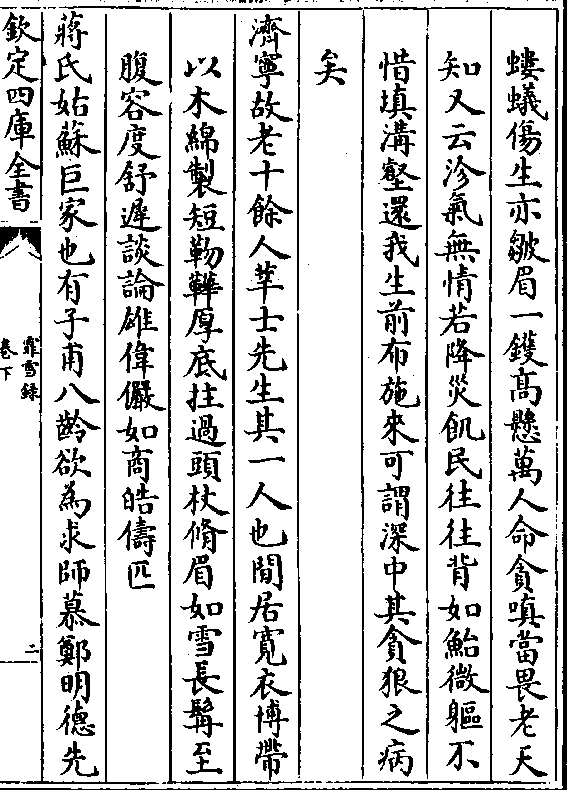 螻蟻傷生亦皺眉一鑊髙懸萬人命貪嗔當畏老天
知又云沴氣無情若降災飢民往往背如鮐微軀不
惜填溝壑還我生前布施來可謂深中其貪狠之病
矣
濟寧故老十餘人莘士先生其一人也閒居寛衣博帶
以木綿製短靿鞾厚底拄過頭杖脩眉如雪長髯至
腹容度舒遲談論雄偉儼如商皓儔匹
蔣氏姑蘇巨家也有子甫八齡欲為求師慕鄭明德先
欽定四庫全書
霏雪録
卷下
二